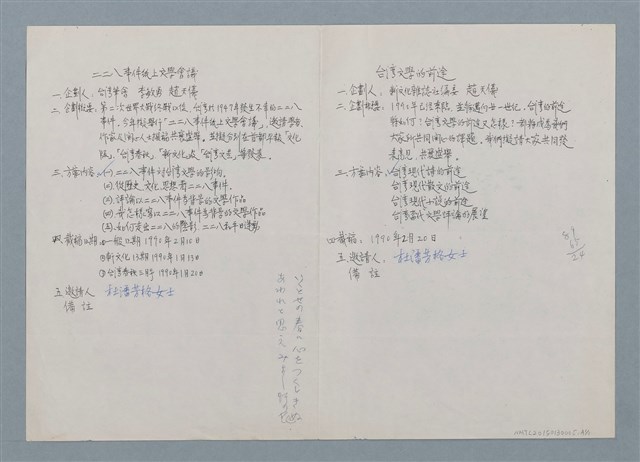 二二八事件紙上文學會議
一. 企劃人: 台灣筆會 李敏勇 趙天儀
二. 企劃概要: 第二次世界大戰終戰以後, 台灣於1947年發生不幸的二二八
事件. 今年擬舉行「二二八事件紙上文學會議」, 邀請學者、
作家
版」、「台灣春秋」、「新文化」及「台灣文藝」等發表.
三. 方案內容: (一) 二二八事件對台灣文學的影響.
(二). 從歷史、文化、思想看二二八事件.
(三). 評論以二二八事件為背景的文學作品
(四). 要怎樣寫以二二八事件為背景的文學作品
(五). 如何走出二二八的陰影
四. 截稿日期: ①一般日期 1990年2月10日
②新文化13期 1990年1月13日
③台灣春秋 1990年1月20日
五. 邀請人 杜潘芳格女士
備註
台灣文學的前途
一. 企劃人: 新文化雜誌社編委 趙天儀
二. 企劃概要: 1990年已經來臨, 並將邁向廿一世紀, 台灣的前途
將如何? 台灣文學的前途又怎樣? 都將成為我們
大家所共同關心的課題, 我們擬請大家共同發
表意見, 共襄盛舉.
三. 方案內容: 台灣現代詩的前途
台灣現代散文的前途
台灣現代小說的前途
台灣當代文學評論的展望
四. 截稿: 1990年2月20日
五. 邀請人: 杜潘芳格女士
備註